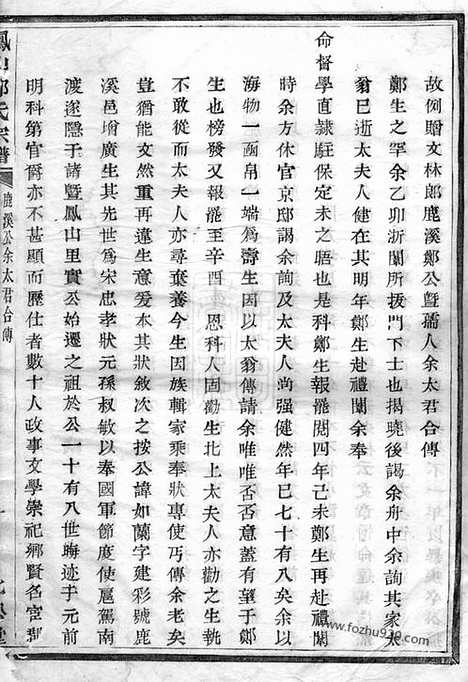 故例贈文林郎鹿溪鄭公曁孺人余太君合傳
鄭生之罕余乙卯浙闈所拔門下士也揭曉後謁余舟中余詢其家太
翁已逝太夫人健在其明年鄭生赴禮闈余奉
命督學直隷駐保定未之晤也是科鄭生報罷閱四年己未鄭生再赴禮闈
時余方休官京邸謁余詢及太夫人尚强健然年已七十有八矣余以
海物一函帛一端爲壽生因以太翁傳請余唯唯否否意蓋有望于鄭
生也榜發又報罷至辛酉　恩科人固勸生北上太夫人亦勸之生執
不敢從而太夫人亦尋棄養今生因族輯家乘奉狀專使丐傳余老矣
豈猶能文然重再違生意爰本其狀敘次之按公諱如蘭字建彩號鹿
溪邑增廣生其先世爲宋忠孝狀元孫叔敏以奉國軍節度使扈駕南
渡遂隱于諸暨鳳山里實公始遷之祖於公一十有八世晦迹于元前
明科第官爵亦不甚顯而歷仕者數十人政事文學崇祀鄉賢名宦
鹿溪公余太君合傳
www.fozhu920.com